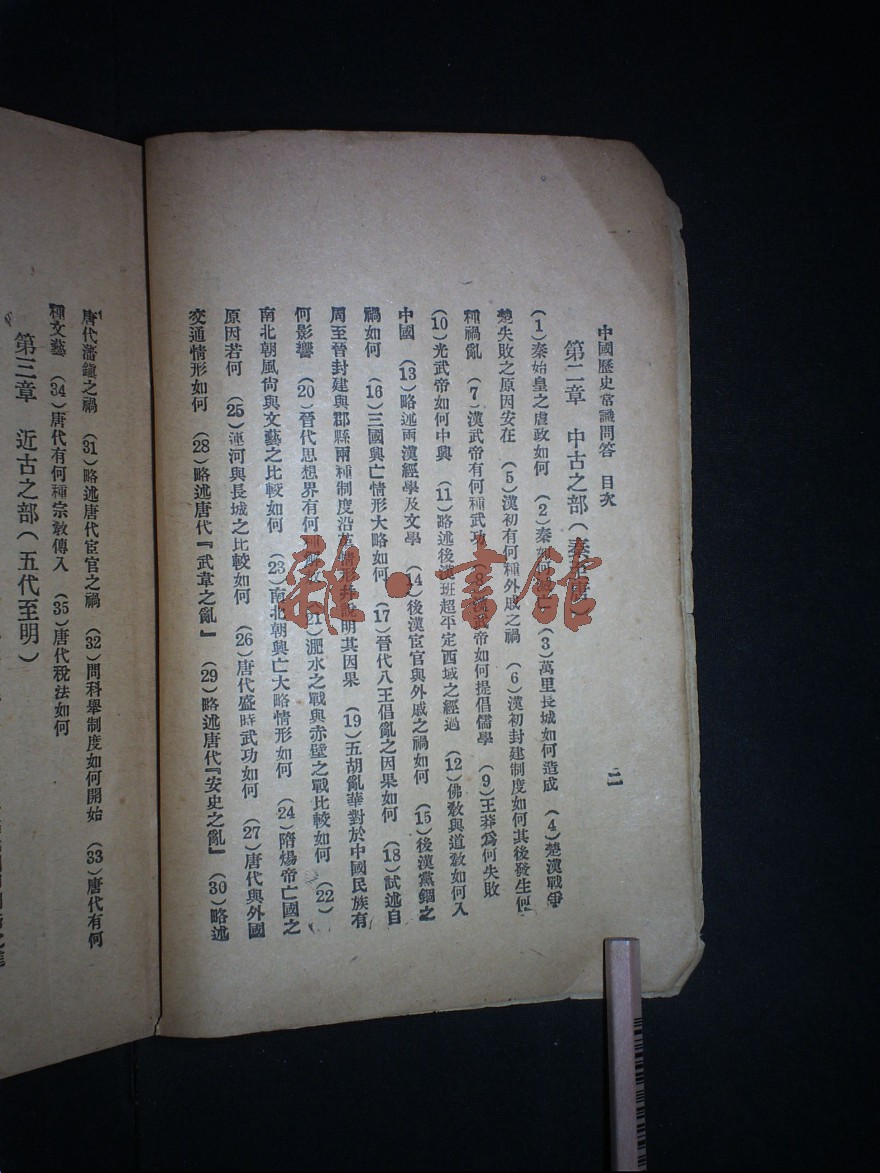 中國歷史常識問答 目次
二
第二章 中古之部(秦至唐)
(1)秦始皇之虐政如何 (2)秦 (3)萬里長城如何造成 (4)楚漢戰爭
楚失敗之原因安在 (5)漢初有何種外戚之禍 (6)漢初封建制度如何其後發生何
種禍亂 (7)漢武帝有何種武功 (8)漢武帝如何提倡儒學 (9)王莽爲何失敗
(10)光武帝如何中興 (11)略述後漢班超平定西域之經過 (12)佛敎與道敎如何入
中國 (13)略述兩漢經學及文學 (14)後漢宦官與外戚之禍如何 (15)後漢黨錮之
禍如何 (16)三國興亡情形大略如何 (17)晉代八王倡亂之因果如何 (18)試述自
周至晉封建與郡縣兩種制度沿革情形并說明其因果 (19)五胡亂華對於中國民族有
何影響 (20)晉代思想界有何種 (21)淝水之戰與赤壁之戰比較如何 (22)
南北朝風尙與文藝之比較如何 (23)南北朝興亡大略情形如何 (24)隋煬帝亡國之
原因若何 (25)運河與長城之比較如何 (26)唐代盛時武功如何 (27)唐代與外國
交通情形如何 (28)略述唐代『武韋之亂』 (29)略述唐代『安史之亂』 (30)略述
唐代藩鎭之禍 (31)略述唐代宦官之禍 (32)問科舉制度如何開始 (33)唐代有何
種文藝 (34)唐代有何種宗敎傳入 (35)唐代稅法如何
第三章 近古之部(五代至明)
雜·書館